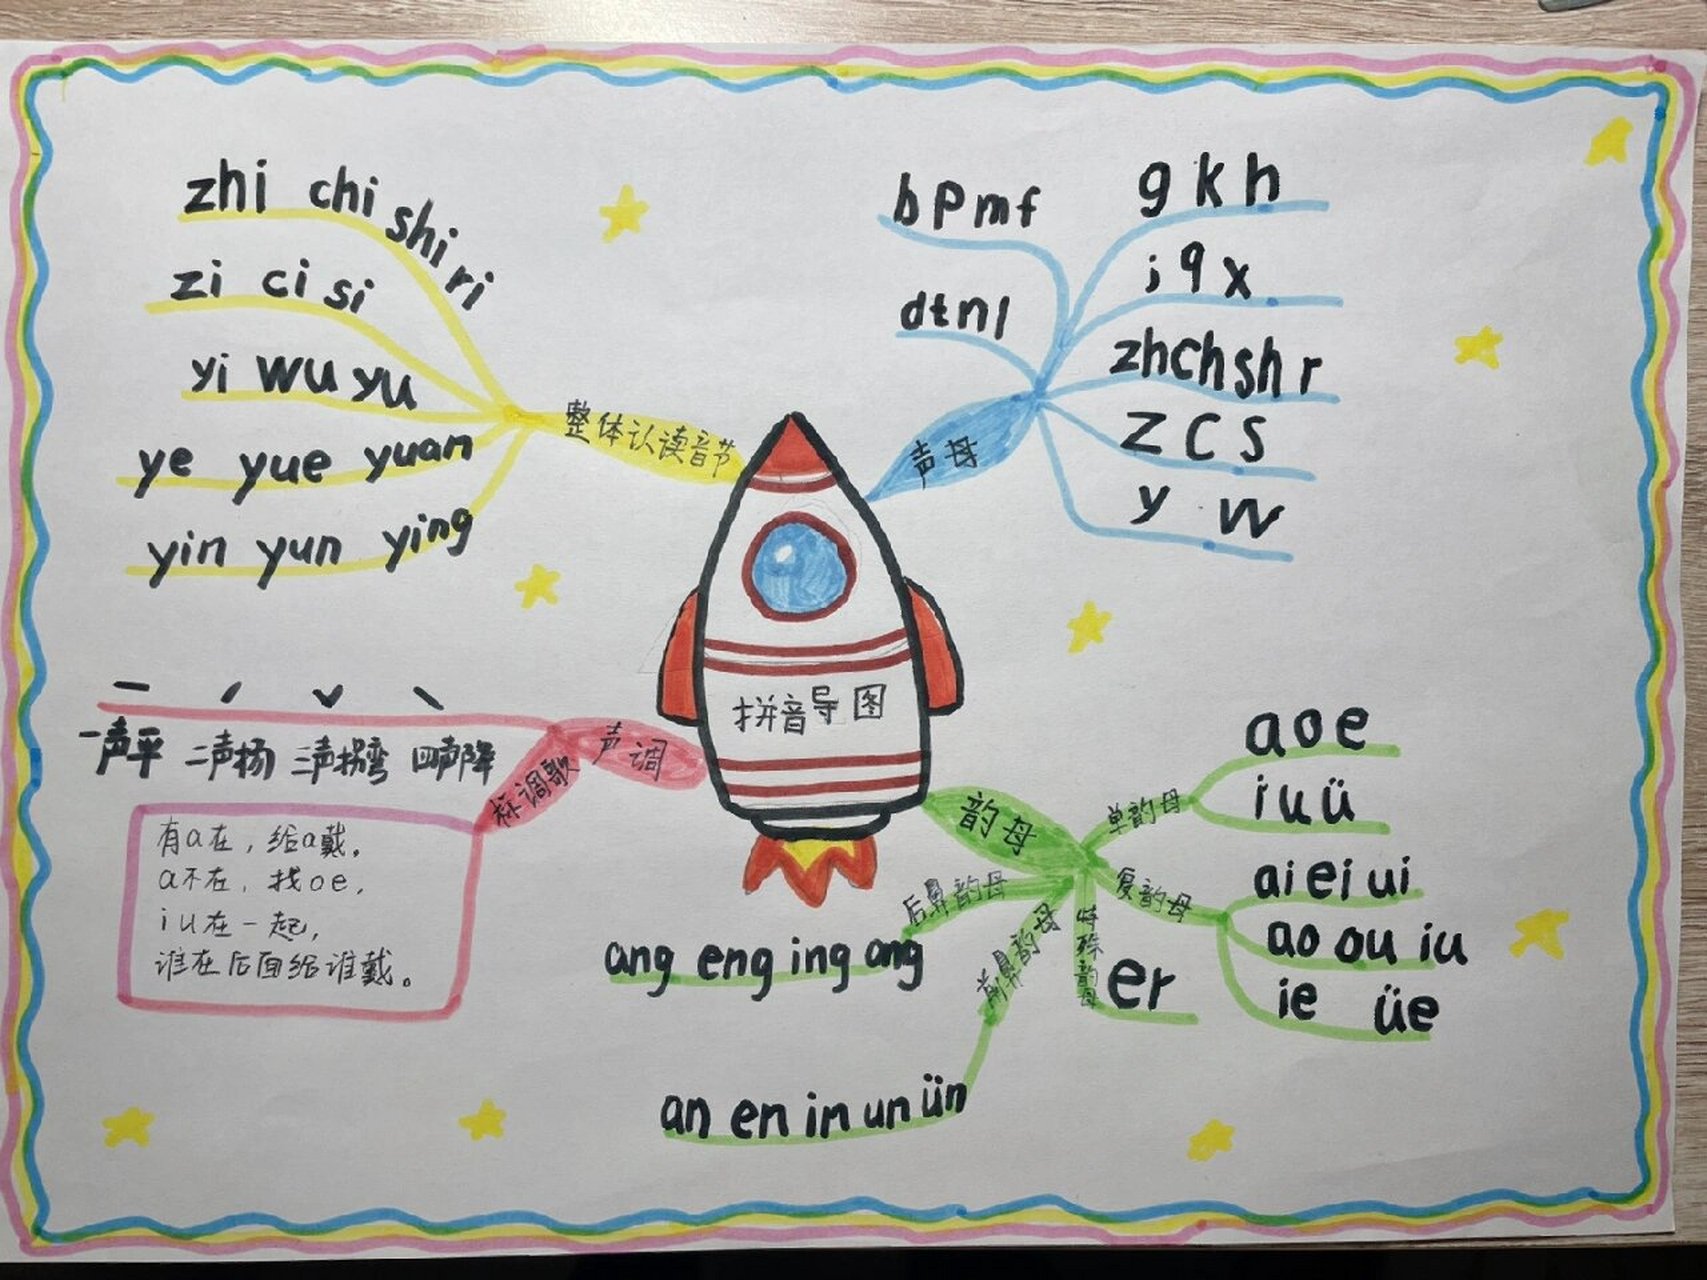 zhi chi shi ri
zi ci si
yi wu yu
ye yue yuan
yin yun ying
整体认读音节
b p m f
d t n l
g k h
j q x
zh ch sh r
z c s
y w
声母
拼音导图
声调
一声平 二声扬 三声拐弯 四声降
标调歌
有a在，给a戴。
a不在，找oe，
iu在一起，
谁在后面给谁戴。
韵母
单韵母
a o e
i u ü
复韵母
ai ei ui
ao ou iu
ie üe
特殊韵母
er
后鼻韵母
ang eng ing ong
前鼻韵母
an en in un ün